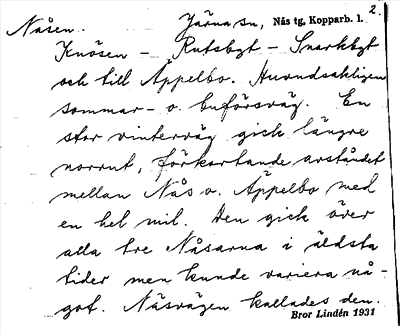 Nåsen. Järna sn, Nås tg, Kopparb. l. 2.
Knösen – Rutsbyt – Snarkbyt
och till Äppelbo. Huvudsakligen
sommar- o. buförsväg. En
stor vinterväg gick längre
norrut, förkortande avståndet
mellan Nås o. Äppelbo med
en hel mil. Den gick över
alla tre Nåsarna i äldsta
tider men kunde variera nå-
got. Näsvägen kallades den.
Bror Lindén 1931